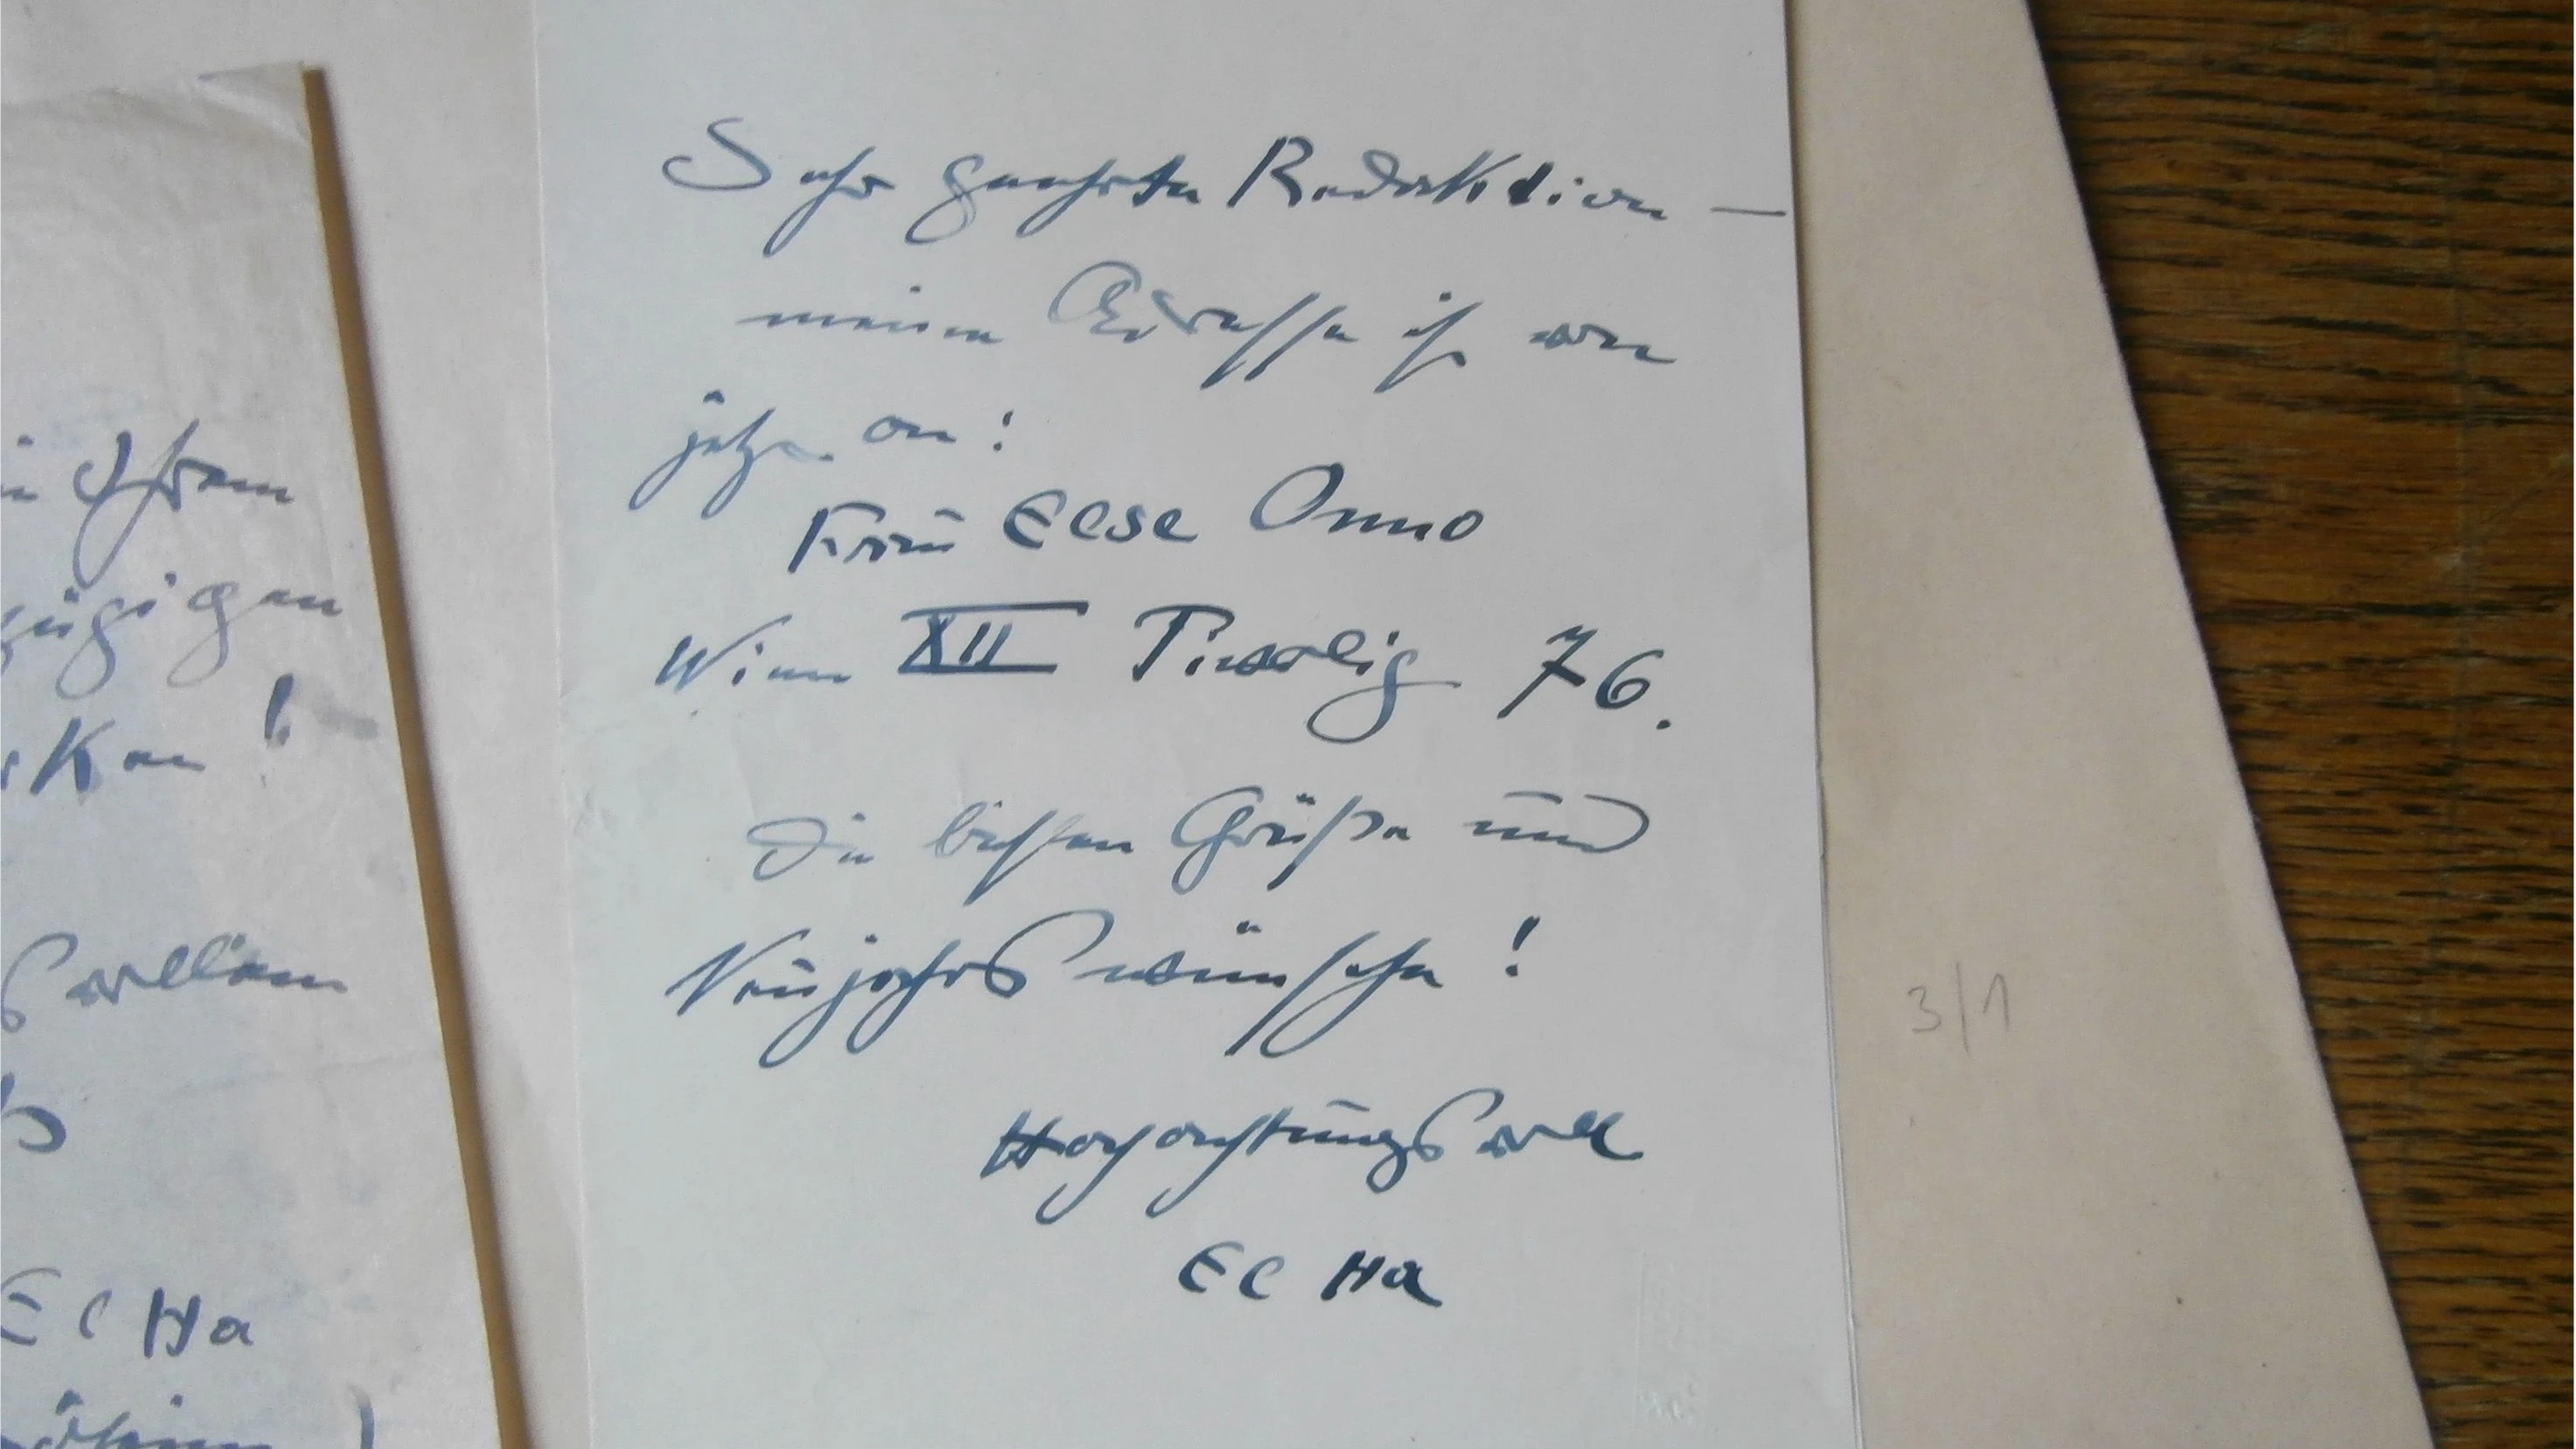 Sehr geehrte Redaktion —
meine Adresse ist von
jetzt an:
Frau Else Onno
Wien XII Tivolig 76.
Die besten Grüße und
Neujahrswünsche!
Hochachtungsvoll
EC Ha
Ihrem
zügigen
ken!
svollem
EC Ha
3/1